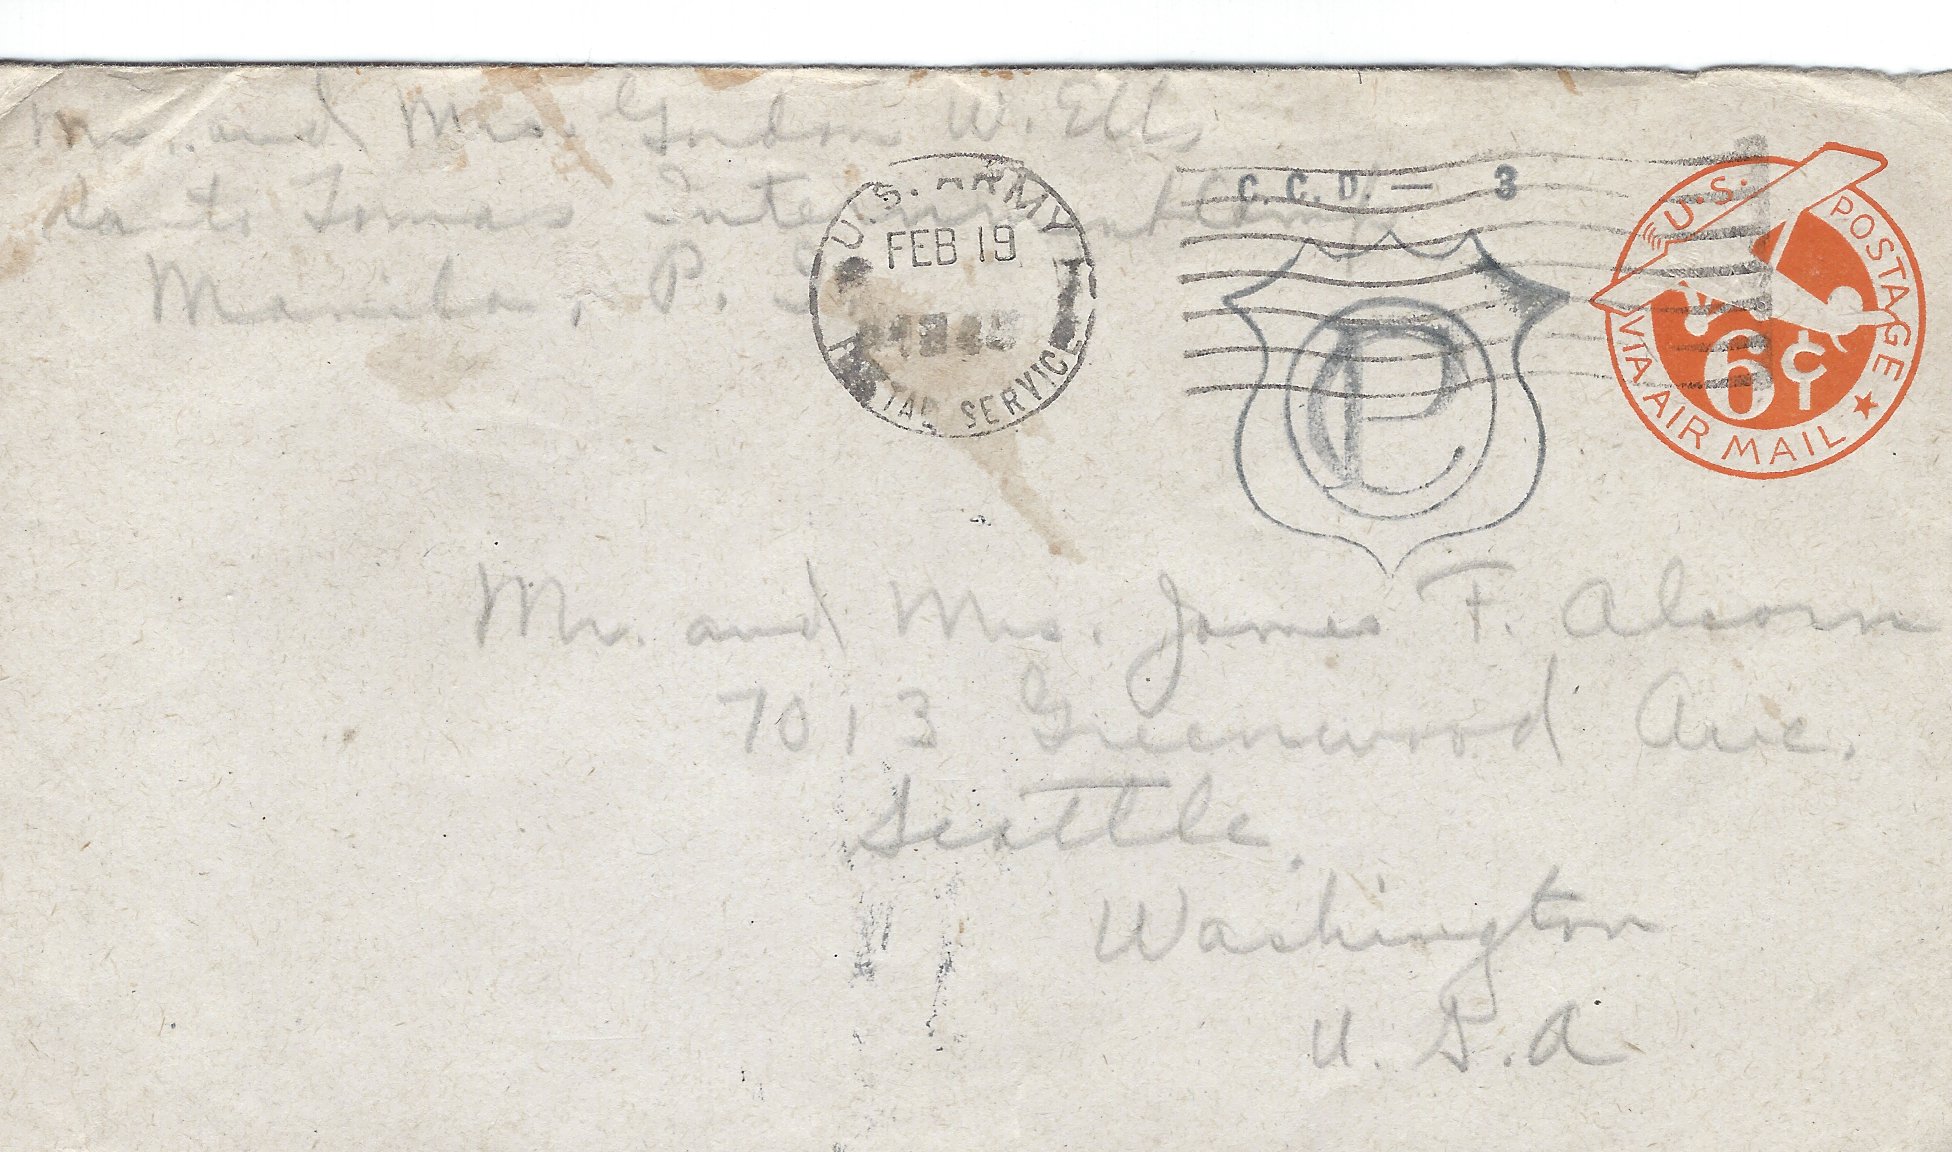 Mr. and Mrs. Gordon W. Ells
Santo Tomas Internment Camp
Manila, P. I.
U.S. ARMY
FEB 19
POSTAL SERVICE
C.C.D. — 3
P
U.S. POSTAGE
6¢
VIA AIR MAIL
Mr. and Mrs. James F. Alcorn
7013 Greenwood Ave.
Seattle,
Washington
U. S. A